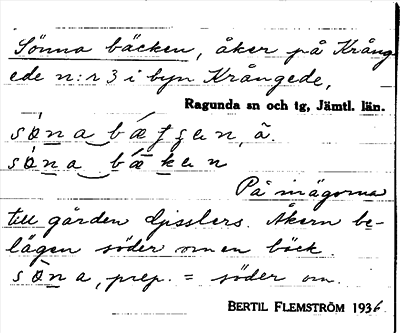 Sönna bäcken, åker på Krång
ede n:r 3 i byn Krångede,
Ragunda sn och tg, Jämtl. län.
På inägorna
till gården Djisslers. Åkern be-
lägen söder om en bäck.
prep. = söder om.
BERTIL FLEMSTRÖM 1936